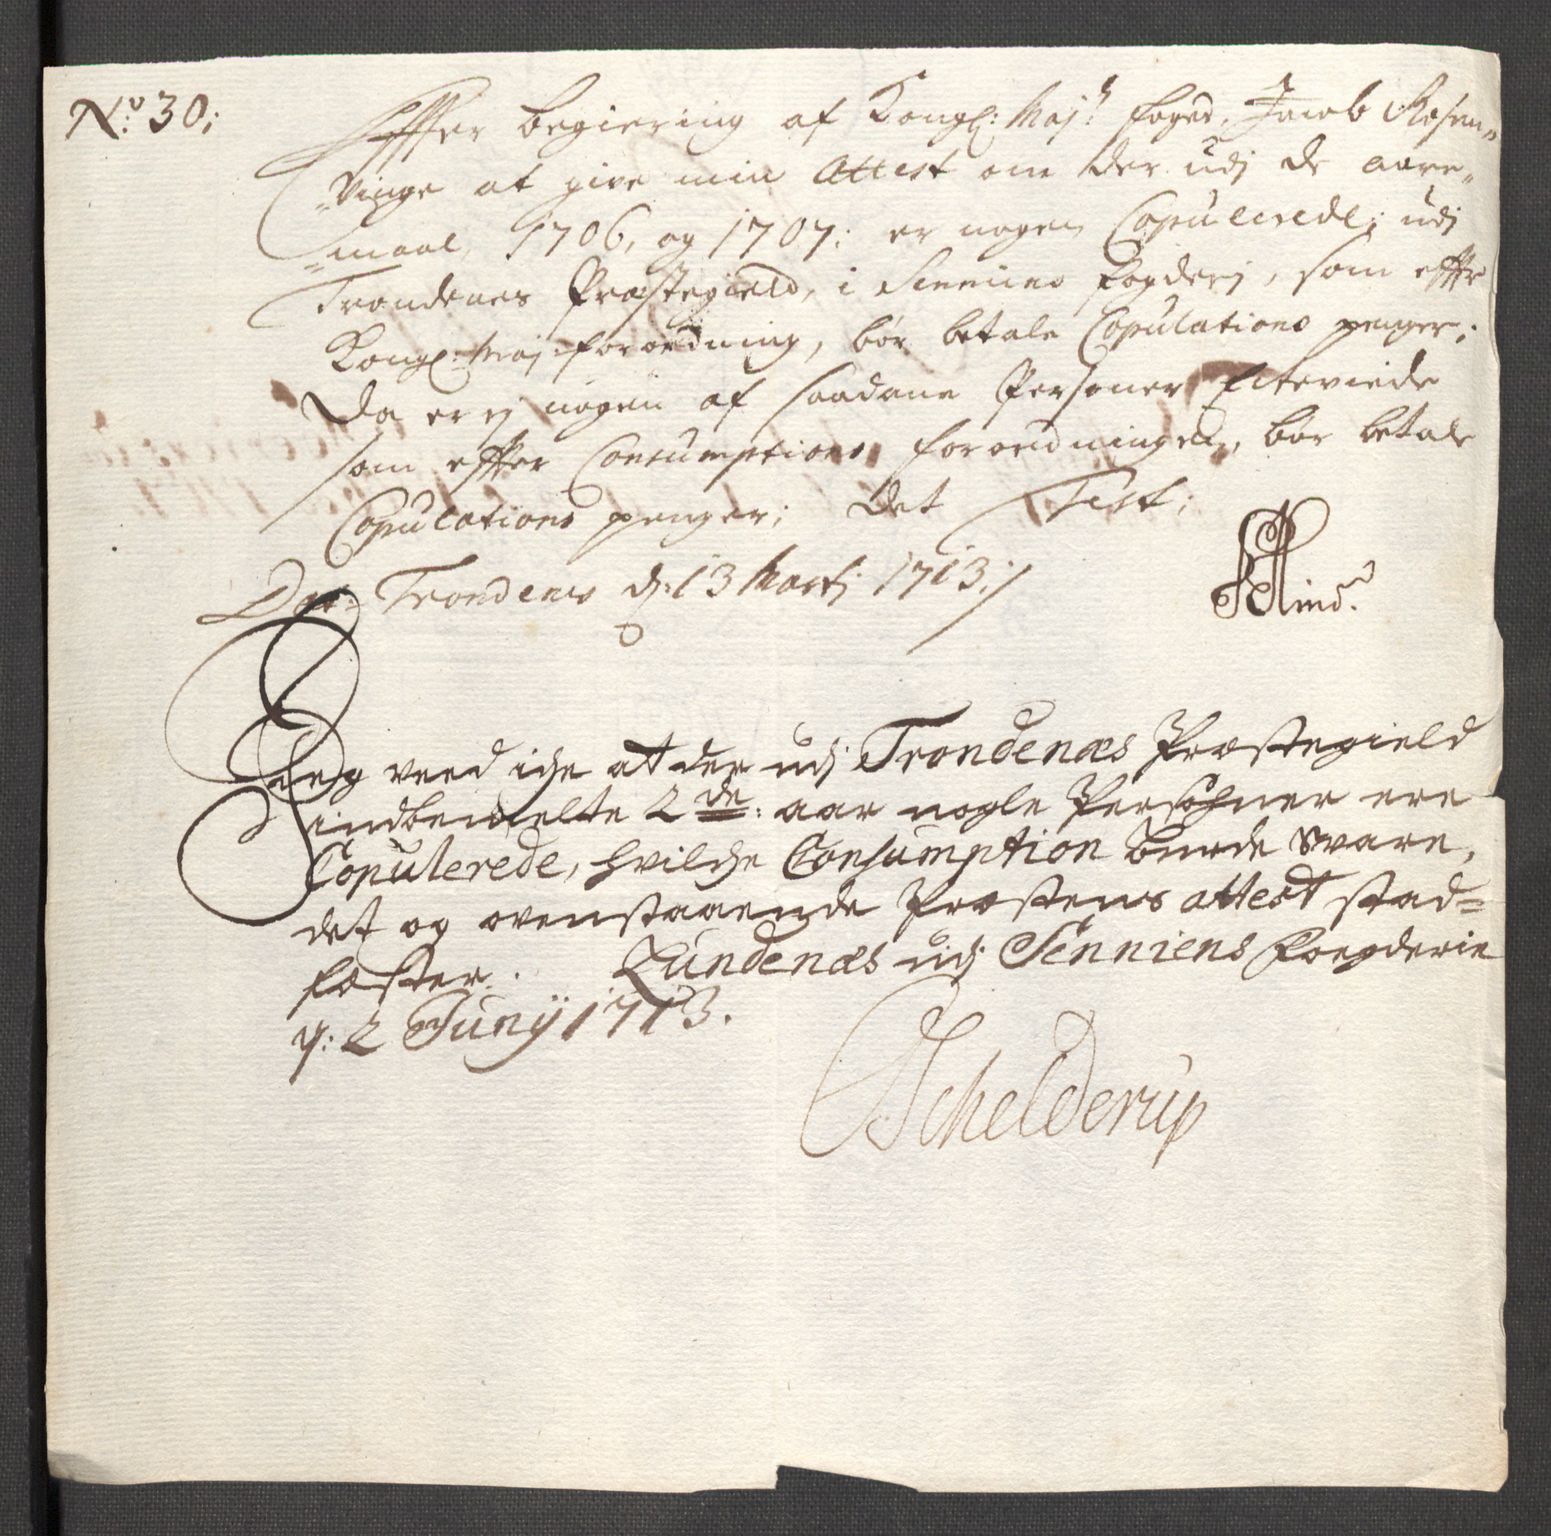 No 30;
Effter begiering af Kongl: Maj:ts foged, Jacob Rosen„
„vinge at give min Attest om der udj de aare„
„maal, 1706, og 1707: er nogen Copulerede; udj
Trondenes Præstegield, i Senniens fogderj, som effter
Kongl: Maj: forordning, bør betale Copulations penger;
Da er ej nogen af saadane Personer Ecteviede
som effter Consumptions forordningen, bør betale
Copulations penger; Det Test;
Dat: Trondenes d: 13 Martj 1713:/
Hind.
Jeg veed iche at der udj Trondenæs Præstegield
indbemelte 2de: aar nogle Persohner ere
Copulerede, hvilche Consumption burde Svare,
det og ovenstaaende Præstens attest stad=
fæster. Lundenæs udj Senniens Foegderie
d: 2 Junij 1713.
Schelderup